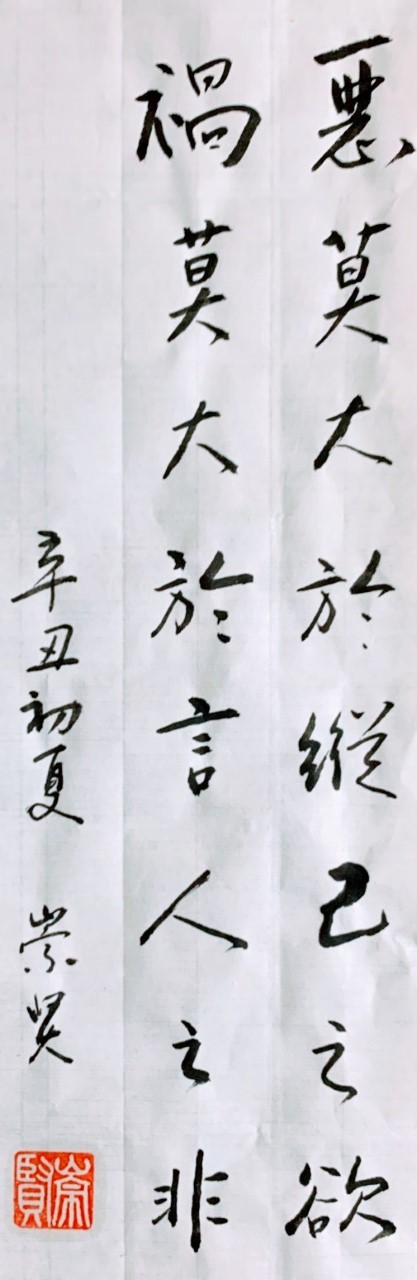 惡莫大於縱己之欲
禍莫大於言人之非
辛丑初夏 崇贤
崇賢